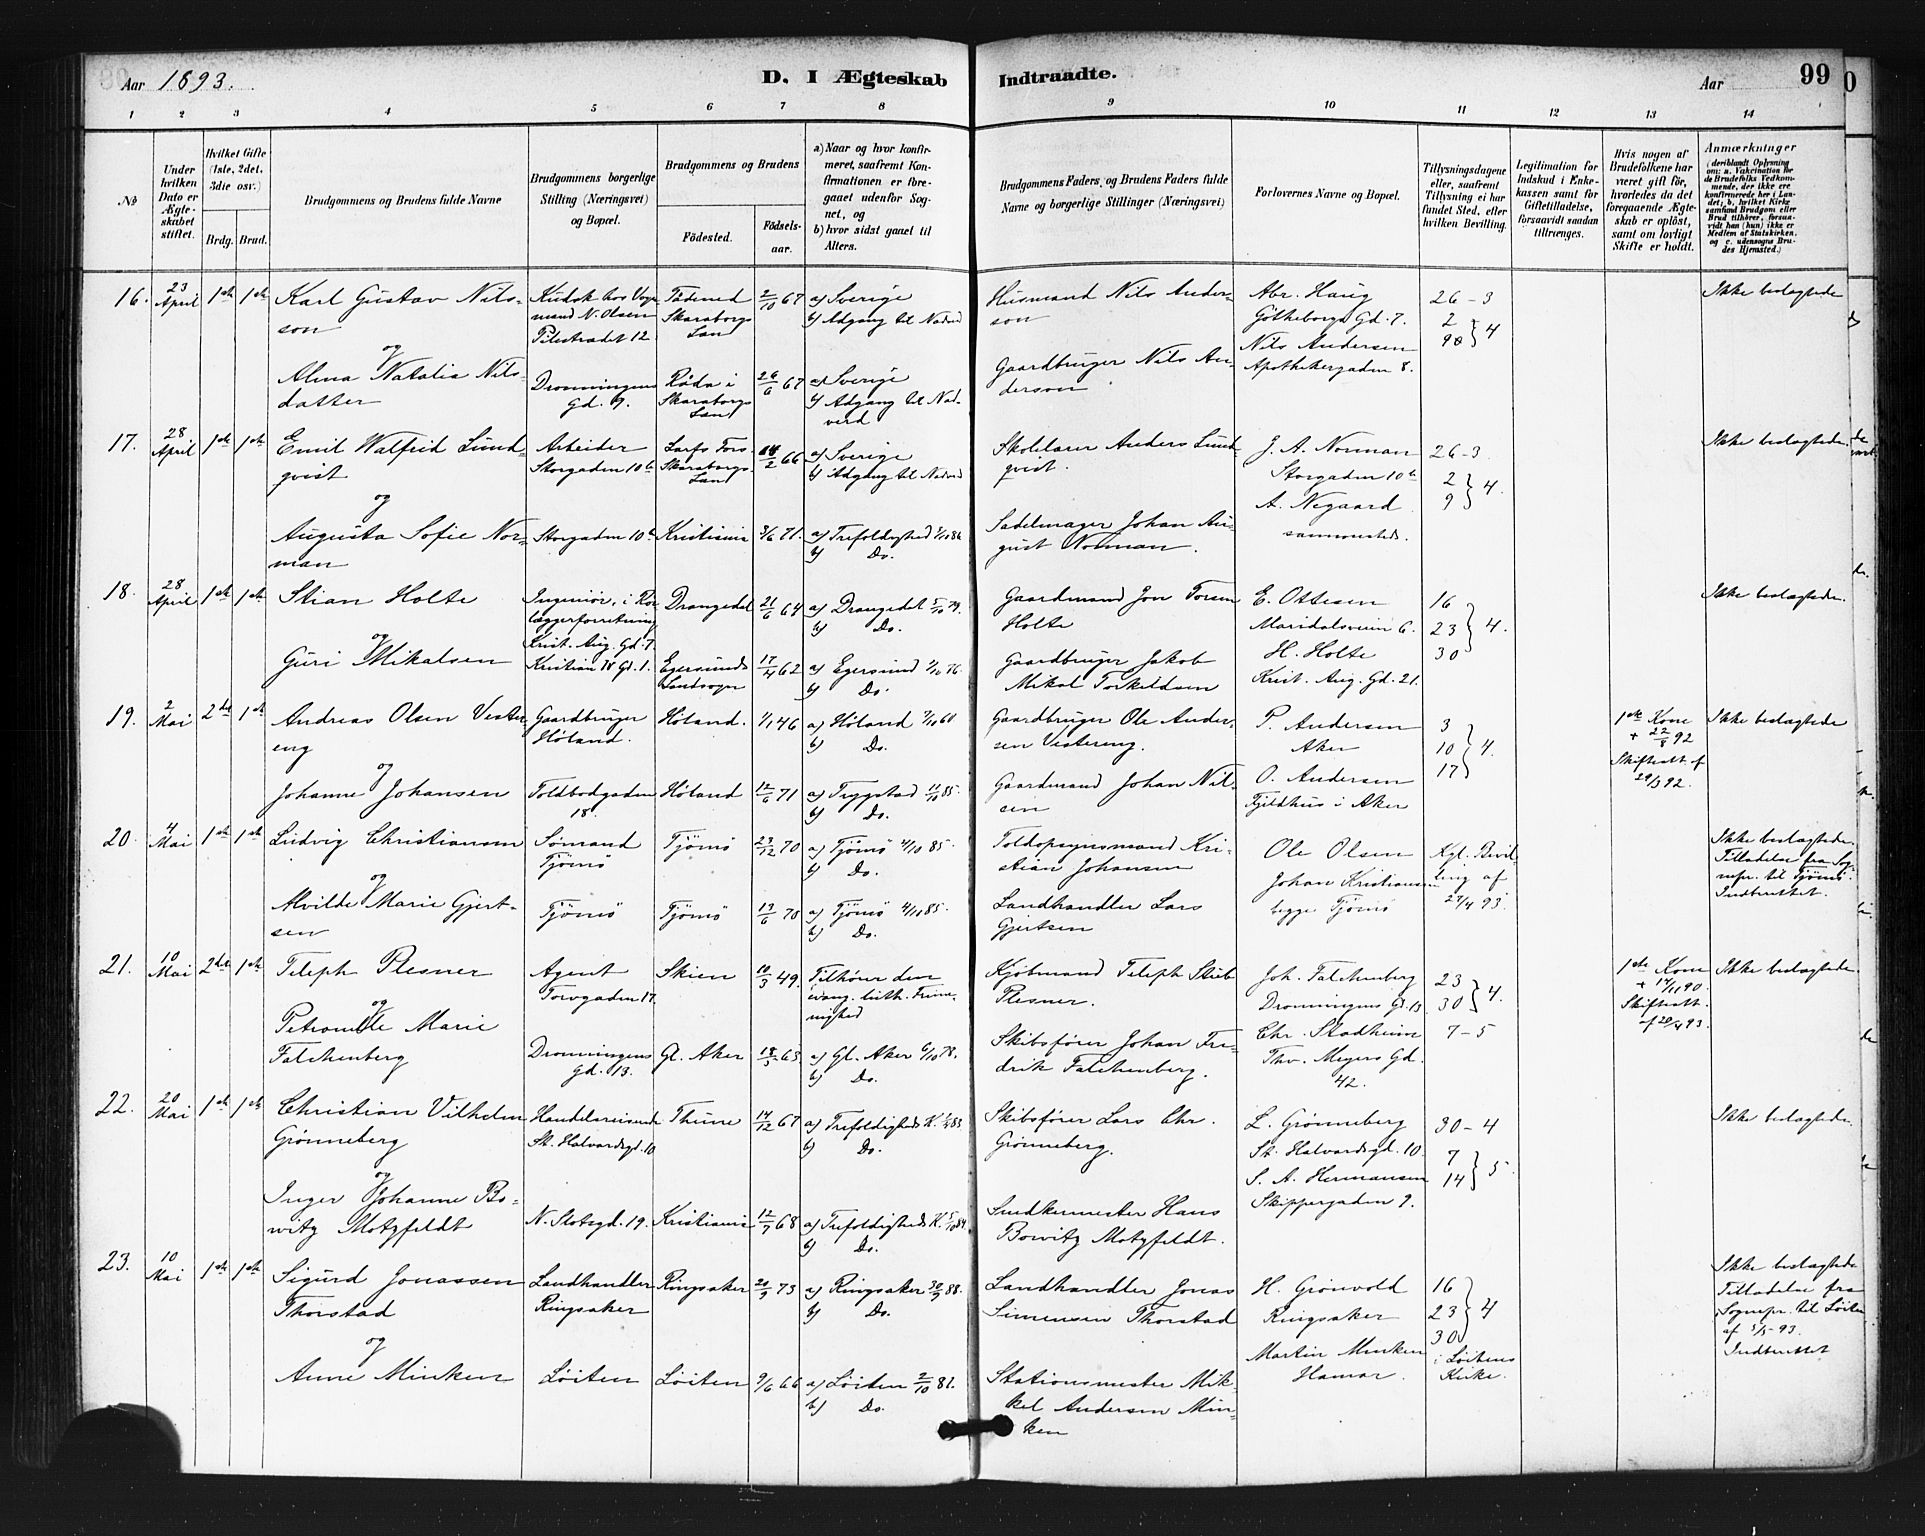 Aar 1893.
D. I Ægteskab Indtraadte.
Aar 99
1 2 3 4 5 6 7 8 9 10 11 12 13 14
No
Under hvilken Dato er Ægteskabet stiftet.
Hvilket Gifte (1ste, 2det, 3die osv.)
Brdg. Brud.
Brudgommens og Brudens fulde Navne
Brudgommens borgerlige Stilling (Næringsvei) og Bopæl.
Brudgommens og Brudens
Fødested.
Fødselsaar.
a) Naar og hvor konfirmeret, saafremt Konfirmationen er foregaaet udenfor Sognet, og
b) hvor sidst gaaet til Alters.
Brudgommens Faders, og Brudens Faders fulde Navne og borgerlige Stillinger (Næringsvei)
Forlovernes Navne og Bopæl.
Tillysningsdagene eller, saafremt Tillysning ei har fundet Sted, efter hvilken Bevilling.
Legitimation for Indskud i Enkekassen samt for Giftetilladelse, forsaavidt saadan tiltrænges.
Hvis nogen af Brudefolkene har været gift før, hvorledes da det foregaaende Ægteskab er opløst, samt om lovligt Skifte er holdt.
Anmærkninger (deriblandt Oplysning om: a. Vakcination for de Brudefolks Vedkommende, der ikke ere konfirmerede her i Landet; b. hvilket Kirkesamfund Brudgom eller Brud tilhører, forsaavidt han (hun) ikke er Medlem af Statskirken, og c. udensogns Brudes Hjemsted.)
16. 23 April 1ste 1ste Karl Gustav Nilsson
Kudsk hos Vognmand N. Olsen Pilestrædet 12
Skaraborgs Län 2/10 67
a) Sverige
b) Adgang til Nadverd
Husmand Nils Anderson
Abr. Haug
Götheborgs Gd. 7.
Nils Andersen
Apothekergaden 8.
26-3
2
9 } 4
Ikke beslægtede
og
Alma Natalia Nilsdatter
Dronningens Gd. 9.
Råda i Skaraborgs Län 26/6 67
a) Sverige
b) Adgang til Nadverd
Gaardbruger Nils Anderson
17. 28 April 1ste 1ste Emil Walfrid Lundqvist
Arbeider
Storgaden 10b
Skaraborgs Län 2 66
a) Sverige
b) Adgang til Nadverd
Skolelærer Anders Lundqvist.
J. A. Norman
Storgaden 10b
A. Negaard
sammesteds.
26-3.
2
9 } 4.
Ikke beslægtede.
og
Augusta Sofie Norman
Storgaden 10b Kristiania 3/6 71.
a) Trefoldighed 3/10 86
b) Do.
Sadelmager Johan August Norman.
18. 28 April 1ste 1ste Stian Holte
Ingeniør, i Rørlæggerforretning
Krist. Aug. Gd. 7.
Drangedal 21/6 64
a) Drangedal 5/10 79.
b) Do.
Gaardmand Jon Torsen Holte
E. Ottesen
Maridalsveien 6.
H. Holte
Krist. Aug. Gd. 21.
16
23
30 } 4.
Ikke beslægtede.
og
Guri Mikalsen
Kristian IV Gd. 1.
Egersunds Landsogn 17/4 62
a) Egersund 1/10 76.
b) Do.
Gaardbruger Jakob Mikal Torkildsen
19. 2 Mai 2det 1ste Andreas Olsen Vestereng
Gaardbruger
Høland.
Høland. 1/1 46
a) Høland 7/10 60
b) Do.
Gaardbruger Ole Andersen Vestereng.
P. Andersen
Aker
O. Andersen
Fjeldhus i Aker
3
10
17 } 4.
1ste Kone + 22/8 92
Skifteatt. af 29/3 92.
Ikke beslægtede
og
Johanne Johansen
Toldbodgaden 18.
Høland 12/6 71
a) Trygstad 11/10 85.
b) Do.
Gaardmand Johan Nilsen
20. 4 Mai 1ste 1ste Ludvig Christiansen
Sømand
Tjömö
Tjömö 23/12 70
a) Tjömö 4/10 85.
b) Do.
Toldopsynsmand Kristian Johansen
Ole Olsen
Johan Kristiansen
begge Tjömö
Kgl. Bevilling af 27/4 93.
Ikke beslægtede.
Tilladelse fra Sognepr. til Tjömö.
Indberettet.
og
Alvilde Marie Gjertsen
Tjömö Tjömö 13/6 70
a) Tjömö 4/10 85.
b) Do.
Landhandler Lars Gjertsen
21. 10 Mai 2det 1ste Teleph Plesner
Agent
Torvgaden 17.
Skien 10/3 49.
Tilhører den evang. luth. Frimenighed
Kjöbmand Teleph Stub Plesner.
Joh. Falchenberg
Dronningens Gd. 13.
Chr. Stadheim
Thv. Meyers Gd. 42.
23
30 } 4.
7-5
1ste Kone + 14/11 90.
Skifteatt. af 20/4 93.
Ikke beslægtede.
og
Petronelle Marie Falchenberg
Dronningens Gd. 13.
Gl. Aker 18/5 63.
a) Gl. Aker 6/10 78.
b) Do.
Skibsfører Johan Fredrik Falchenberg.
22. 20 Mai 1ste 1ste Christian Vilhelm Grönneberg
Handelsreisende
St. Halvardsgd. 10
Thune 14/12 67
a) Trefoldigheds K. 83
b) Do.
Skibsfører Lars Chr. Grönneberg.
L. Grönneberg
St. Halvardsgd. 10.
S. A. Hermansen
Skippergaden 9.
30-4
7
14 } 5.
Ikke beslægtede.
og
Inger Johanne Bowitz Motzfeldt
N. Slotsgd. 19. Kristiania 12/7 68
a) Trefoldigheds K. 5/10 84.
b) Do.
Snedkermester Hans Bowitz Motzfeldt.
23. 10 Mai 1ste 1ste Sigurd Jonassen Thorstad
Landhandler
Ringsaker
Ringsaker 20/9 73
a) Ringsaker 30/9 88.
b) Do.
Landhandler Jonas Simensen Thorstad
H. Grönvold
Ringsaker
Martin Minken
Hamar.
16
23
30 } 4
i Löitens Kirke.
Ikke beslægtede
Tilladelse fra Sognepr. til Löiten af 5/5-93.
Indberettet
og
Anne Minken
Löiten Löiten 9/6 66
a) Löiten 2/10 81.
b) Do.
Stationsmester Mikkel Andersen Minken